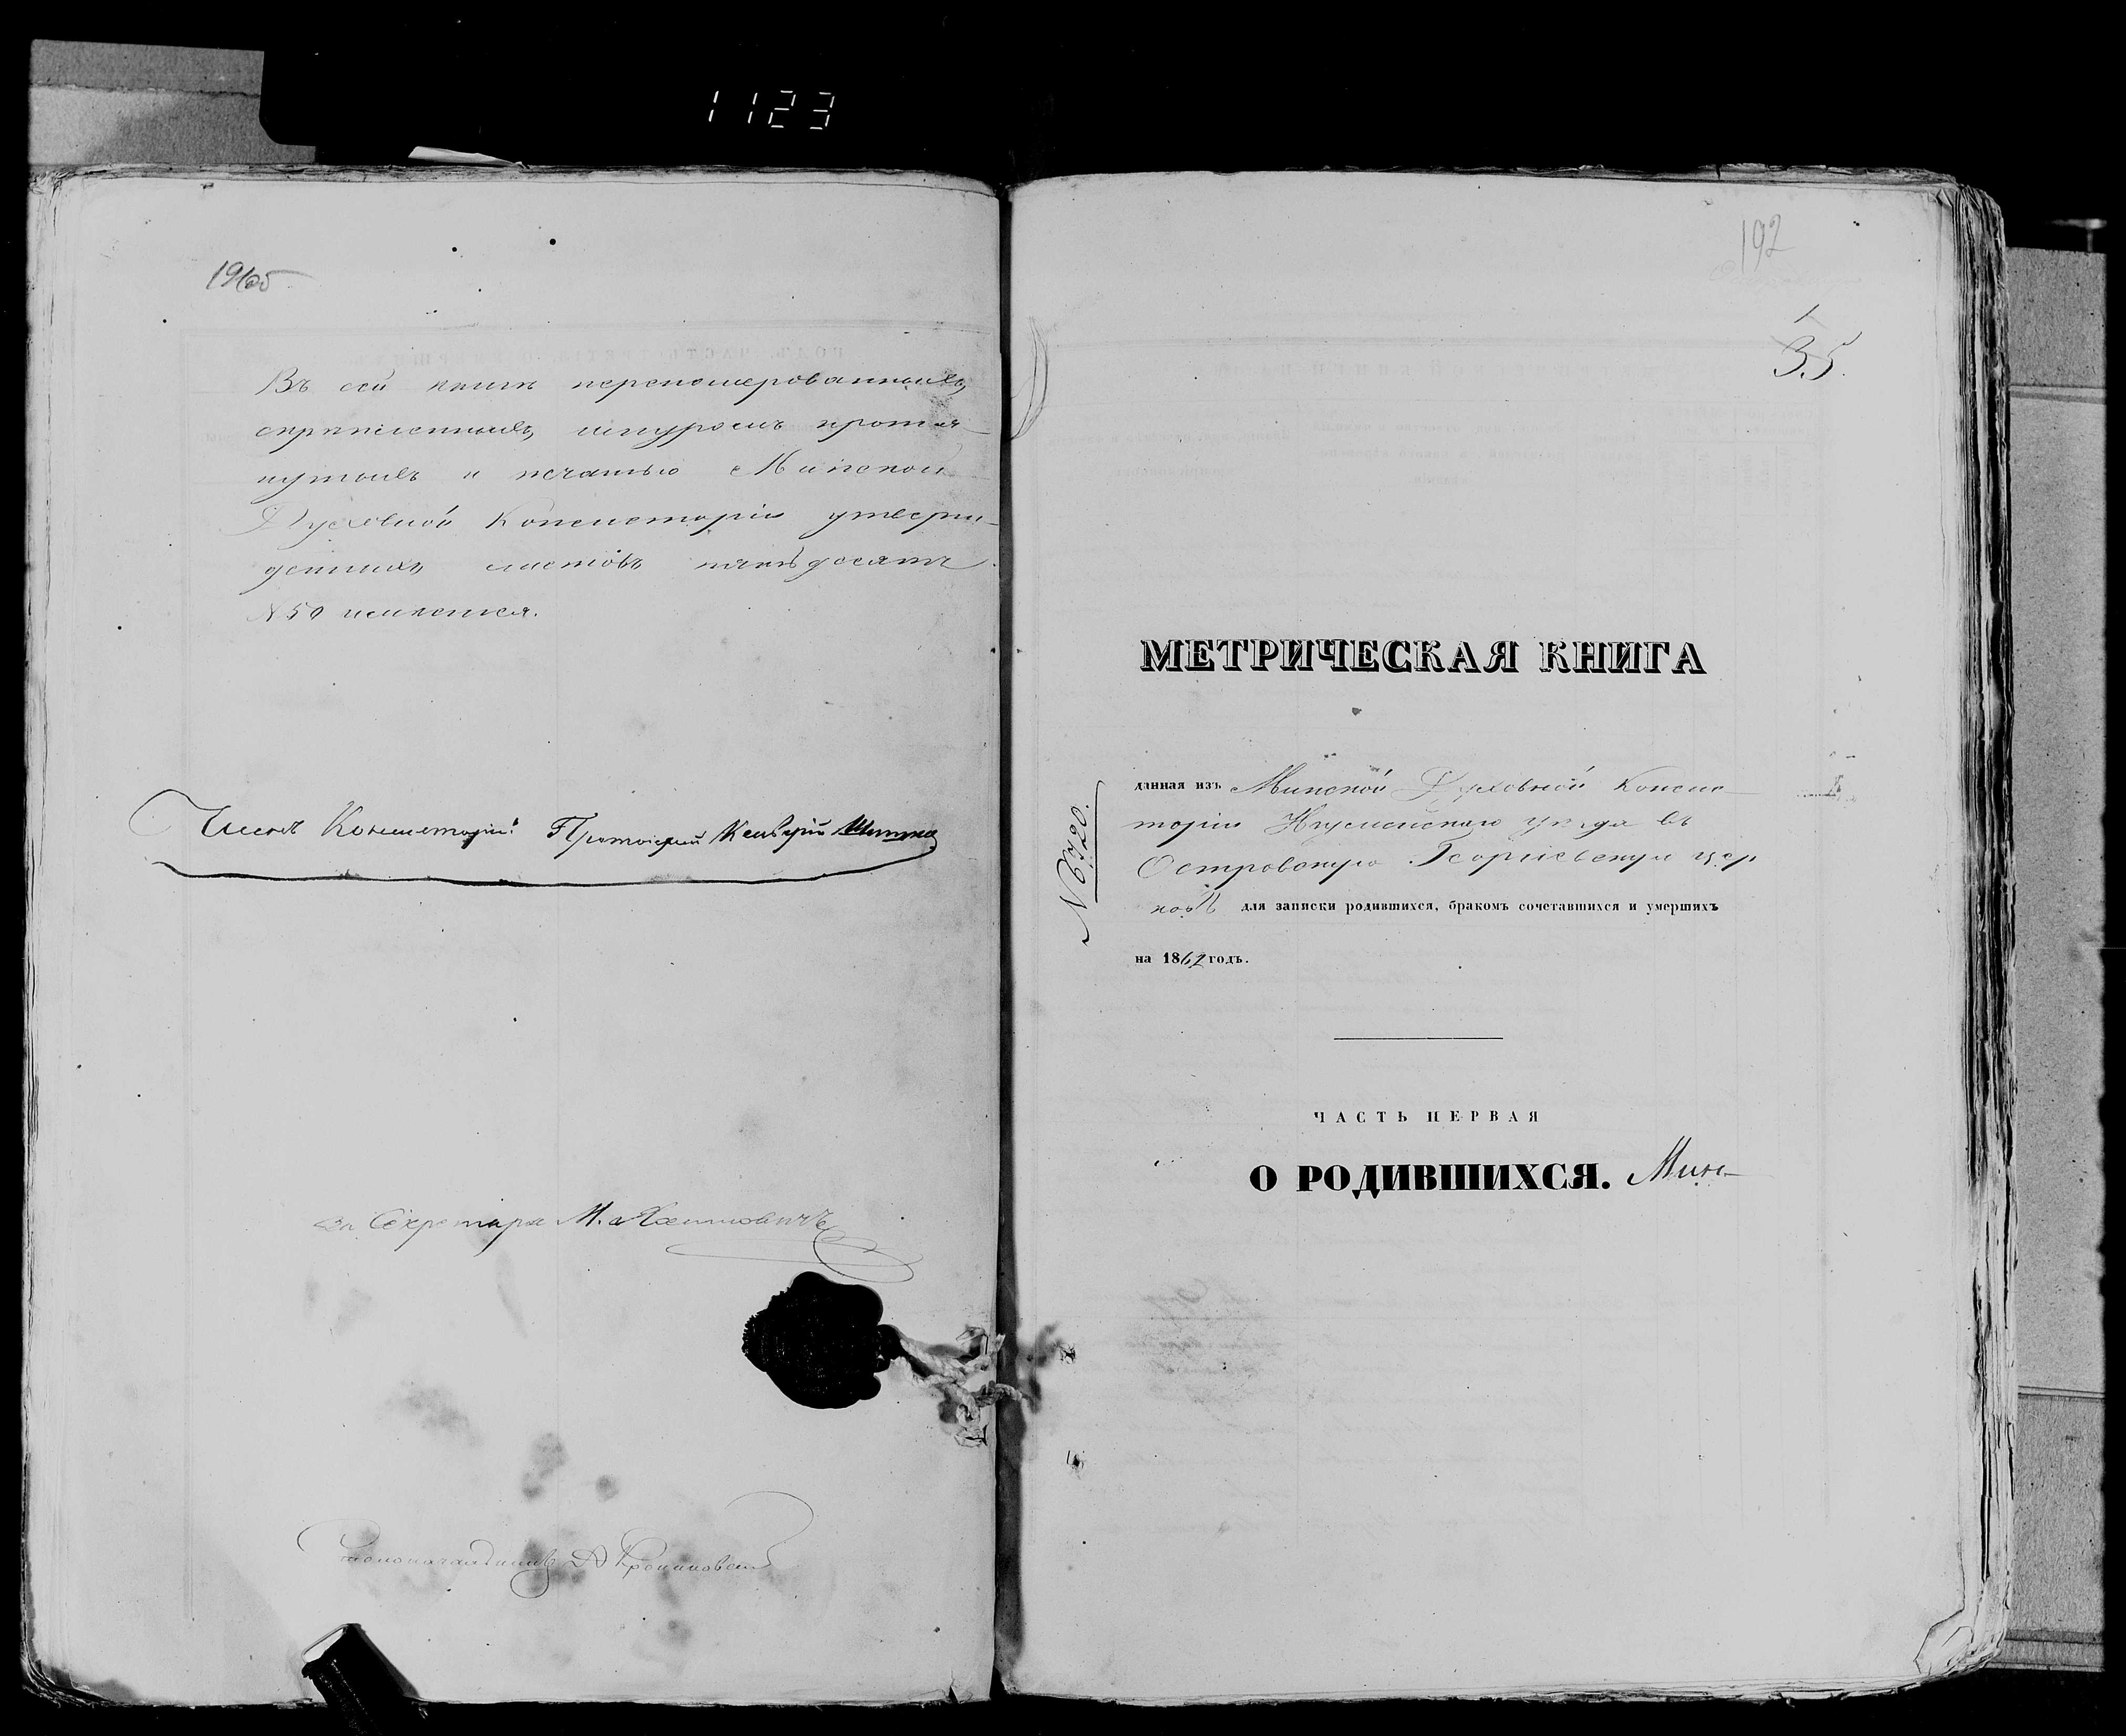 1123
Въ сей книгѣ переномерованныхъ,
скрѣпленныхъ, шнуромъ протя-
нутыхъ и печатью Минской
Духовной Консисторіи утверж-
денныхъ листовъ пятьдесятъ
№ 50 имѣется.
Членъ Консисторіи Протоіерей
За Секретаря М.
Столоначальникъ
192
1
35.
МЕТРИЧЕСКАЯ КНИГА
№ 6720.
данная изъ Минской Духовной Консис-
торіи Игуменскаго уѣзда въ
Островскую Георгіевскую цер
ковь для записки родившихся, бракомъ сочетавшихся и умершихъ
на 1862 годъ.
ЧАСТЬ ПЕРВАЯ
О РОДИВШИХСЯ. Мин-